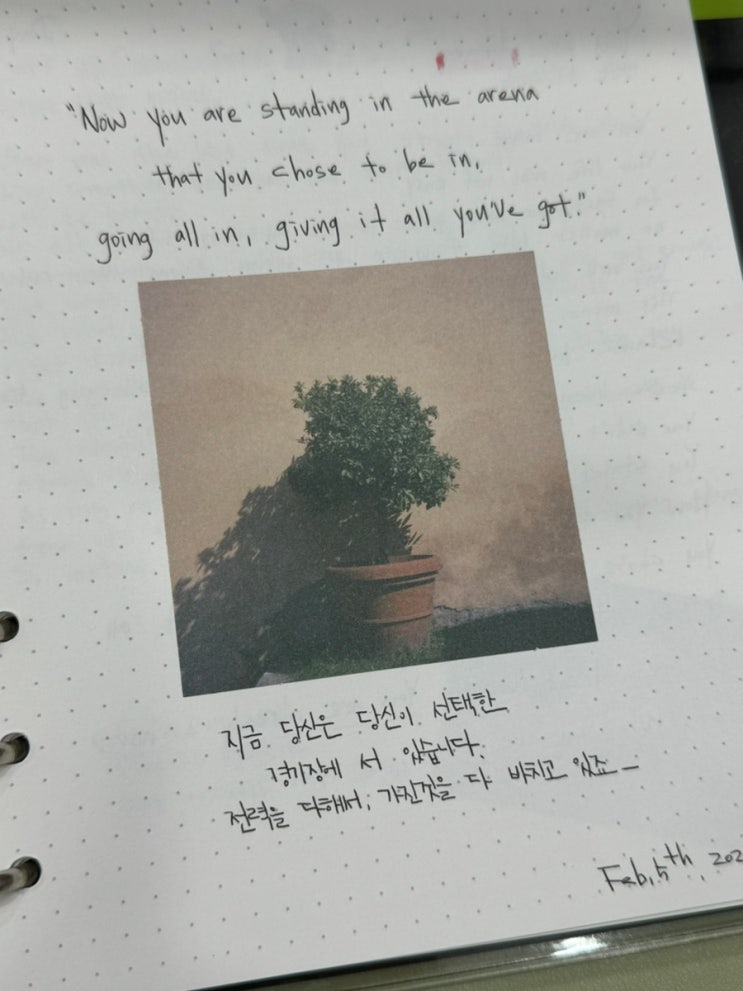 "Now you are standing in the arena
that you chose to be in,
going all in, giving it all you've got."
지금 당신은 당신이 선택한
경기장에 서 있습니다.
전력을 다해서, 가진것을 다 바치고 있죠 –
Feb, 5th, 202